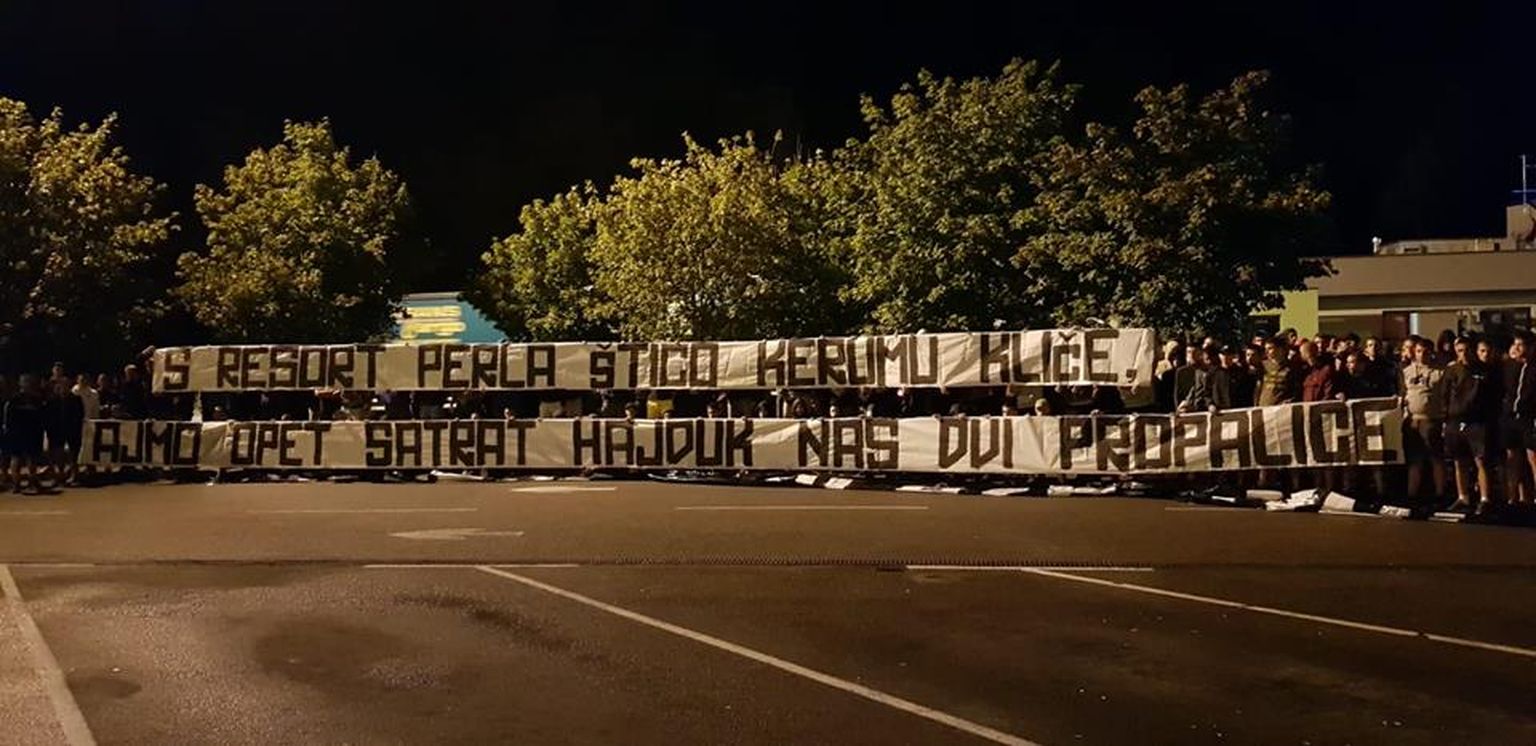 S RESORT PERLA ŠTICO KERUMU KLIČE,
AJMO OPET SATRAT HAJDUK NAS DVI PROPALICE